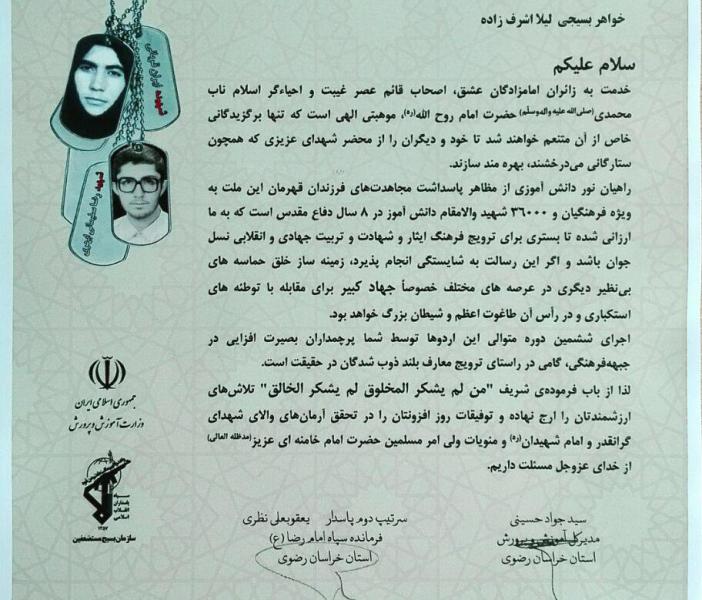 خواهر بسیجی لیلا اشرف زاده
سلام علیکم
خدمت به زائران امامزادگان عشق، اصحاب قائم عصر غیبت و احیاءگر اسلام ناب
محمدی(صلی‌الله علیه وآله وسلم) حضرت امام روح الله(ره)، موهبتی الهی است که تنها برگزیدگانی
خاص از آن متنعم خواهند شد تا خود و دیگران را از محضر شهدای عزیزی که همچون
ستارگانی می‌درخشند، بهره مند سازند.
راهیان نور دانش آموزی از مظاهر پاسداشت مجاهدت‌های فرزندان قهرمان این ملت به
ویژه فرهنگیان و ۳۶۰۰۰ شهید والامقام دانش آموز در ۸ سال دفاع مقدس است که به ما
ارزانی شده تا بستری برای ترویج فرهنگ ایثار و شهادت و تربیت جهادی و انقلابی نسل
جوان باشد و اگر این رسالت به شایستگی انجام پذیرد، زمینه ساز خلق حماسه های
بی‌نظیر دیگری در عرصه های مختلف خصوصاً جهاد کبیر برای مقابله با توطئه های
استکباری و در رأس آن طاغوت اعظم و شیطان بزرگ خواهد بود.
اجرای ششمین دوره متوالی این اردوها توسط شما پرچمداران بصیرت افزایی در
جبهه‌فرهنگی، گامی در راستای ترویج معارف بلند ذوب شدگان در حقیقت است.
لذا از باب فرموده‌ی شریف "من لم یشکر المخلوق لم یشکر الخالق" تلاش‌های
ارزشمندتان را ارج نهاده و توفیقات روز افزونتان را در تحقق آرمان‌های والای شهدای
گرانقدر و امام شهیدان(ره) و منویات ولی امر مسلمین حضرت امام خامنه ای عزیز(مدظله العالی)
از خدای عزوجل مسئلت داریم.
سید جواد حسینی
مدیرکل آموزش و پرورش
استان خراسان رضوی
سرتیپ دوم پاسدار یعقوبعلی نظری
فرمانده سپاه امام رضا (ع)
استان خراسان رضوی
شهیده
شهید
جمهوری اسلامی ایران
وزارت آموزش و پرورش
سپاه
پاسداران
انقلاب
اسلامی
۱۳۵۷
سازمان بسیج مستضعفین